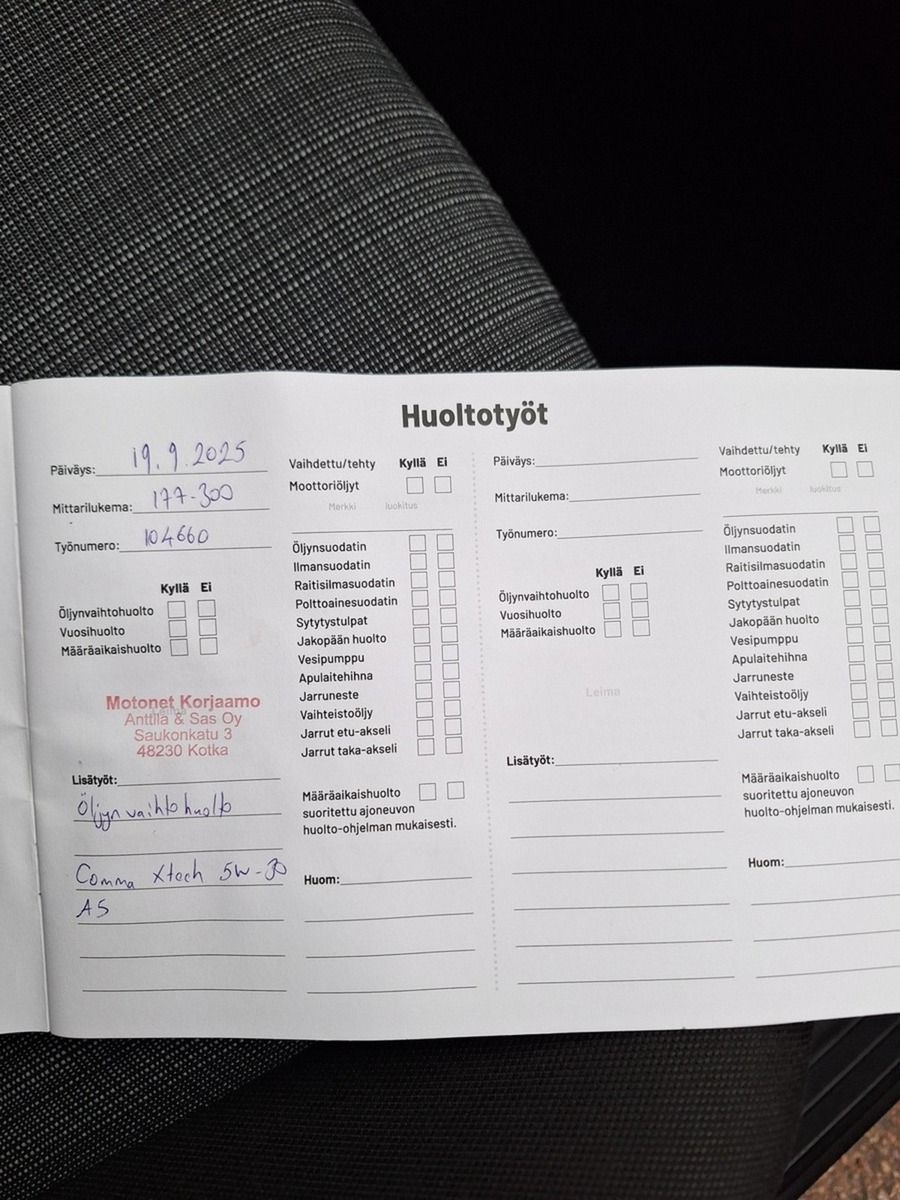 Huoltotyöt
Päiväys: 19.9.2025
Mittarilukema: 177-300
Työnumero: 104660
Kyllä Ei
Öljynvaihtohuolto
Vuosihuolto
Määräaikaishuolto
Leima
Motonet Korjaamo
Anttila & Sas Oy
Saukonkatu 3
48230 Kotka
Lisätyöt:
Öljynvaihtohuolto
Comma Xtech 5W-30
A5
Vaihdettu/tehty Kyllä Ei
Moottoriöljyt
Merkki luokitus
Öljynsuodatin
Ilmansuodatin
Raitisilmasuodatin
Polttoainesuodatin
Sytytystulpat
Jakopään huolto
Vesipumppu
Apulaitehihna
Jarruneste
Vaihteistoöljy
Jarrut etu-akseli
Jarrut taka-akseli
Määräaikaishuolto
suoritettu ajoneuvon
huolto-ohjelman mukaisesti.
Huom:
Päiväys:
Mittarilukema:
Työnumero:
Kyllä Ei
Öljynvaihtohuolto
Vuosihuolto
Määräaikaishuolto
Leima
Lisätyöt:
Vaihdettu/tehty Kyllä Ei
Moottoriöljyt
Merkki luokitus
Öljynsuodatin
Ilmansuodatin
Raitisilmasuodatin
Polttoainesuodatin
Sytytystulpat
Jakopään huolto
Vesipumppu
Apulaitehihna
Jarruneste
Vaihteistoöljy
Jarrut etu-akseli
Jarrut taka-akseli
Määräaikaishuolto
suoritettu ajoneuvon
huolto-ohjelman mukaisesti.
Huom: